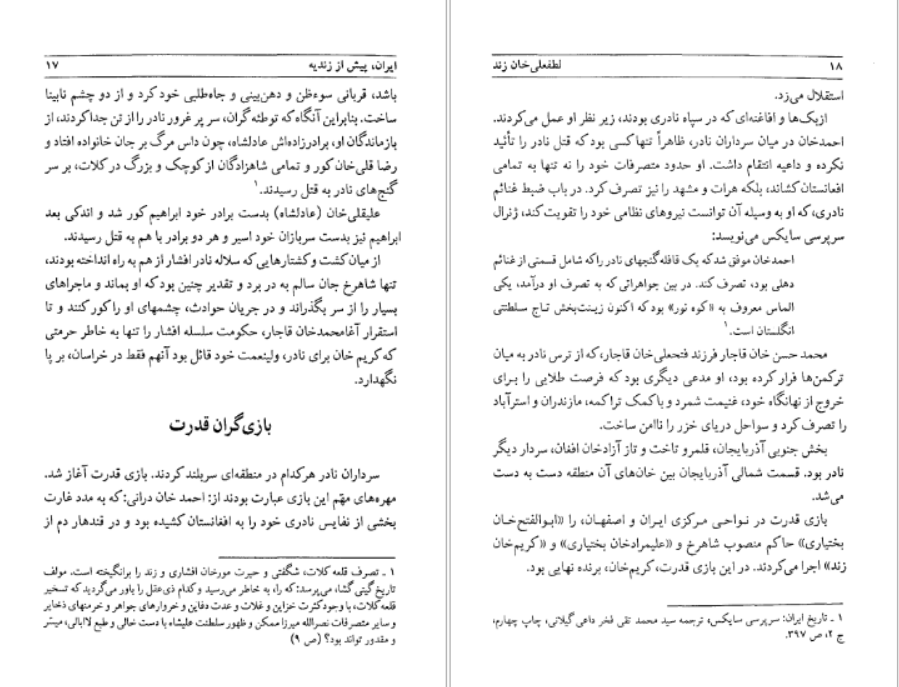 ایران، پیش از زندیه ۱۷
باشد، قربانی سوءظن و دهن‌بینی و جاه‌طلبی خود کرد و از دو چشم نابینا
ساخت. بنابراین آنگاه که توطئه گران، سر پر غرور نادر را از تن جدا کردند، از
بازماندگان او، برادرزاده‌اش عادلشاه، چون داس مرگ بر جان خانواده افتاد و
رضا قلی‌خان کور و تمامی شاهزادگان از کوچک و بزرگ در کلات، بر سر
گنج‌های نادر به قتل رسیدند.۱
علیقلی‌خان (عادلشاه) بدست برادر خود ابراهیم کور شد و اندکی بعد
ابراهیم نیز بدست سربازان خود اسیر و هر دو برادر با هم به قتل رسیدند.
از میان کشت و کشتارهایی که سلاله نادر افشار از هم به راه انداخته بودند،
تنها شاهرخ جان سالم به در برد و تقدیر چنین بود که او بماند و ماجراهای
بسیار را از سر بگذراند و در جریان حوادث، چشمهای او را کور کنند و تا
استقرار آغامحمدخان قاجار، حکومت سلسله افشار را تنها به خاطر حرمتی
که کریم خان برای نادر، ولینعمت خود قائل بود آنهم فقط در خراسان، بر پا
نگهدارد.
بازی‌گران قدرت
سرداران نادر هرکدام در منطقه‌ای سربلند کردند. بازی قدرت آغاز شد.
مهره‌های مهّم این بازی عبارت بودند از: احمد خان درانی: که به مدد غارت
بخشی از نفایس نادری خود را به افغانستان کشیده بود و در قندهار دم از
۱ ـ تصرف قلعه کلات، شگفتی و حیرت مورخان افشاری و زند را برانگیخته است. مولف
تاریخ گیتی گشا، می‌پرسد: که را، به خاطر می‌رسید و کدام ذی‌عقل را باور می‌گردید که تسخیر
قلعه کلات، با وجود کثرت خزاین و غلات و عدت دفاین و خروارهای جواهر و خرمنهای ذخایر
و سایر متصرفات نصرالله میرزا ممکن و ظهور سلطنت علیشاه با دست خالی و طبع لاابالی، میسّر
و مقدور تواند بود؟ (ص ۹)
۱۸ لطفعلی‌خان زند
استقلال می‌زد.
ازبک‌ها و افاغنه‌ای که در سپاه نادری بودند، زیر نظر او عمل می‌کردند.
احمدخان در میان سرداران نادر، ظاهراً تنها کسی بود که قتل نادر را تأئید
نکرده و داعیه انتقام داشت. او حدود متصرفات خود را نه تنها به تمامی
افغانستان کشاند، بلکه هرات و مشهد را نیز تصرف کرد. در باب ضبط غنائم
نادری، که او به وسیله آن توانست نیروهای نظامی خود را تقویت کند، ژنرال
سرپرسی سایکس می‌نویسد:
احمدخان موفق شد که یک قافله گنجهای نادر را که شامل قسمتی از غنائم
دهلی بود، تصرف کند. در بین جواهراتی که به تصرف او درآمد، یکی
الماس معروف به «کوه نور» بود که اکنون زینت‌بخش تاج سلطنتی
انگلستان است.۱
محمد حسن خان قاجار فرزند فتحعلی‌خان قاجار، که از ترس نادر به میان
ترکمن‌ها فرار کرده بود، او مدعی دیگری بود که فرصت طلایی را برای
خروج از نهانگاه خود، غنیمت شمرد و با کمک تراکمه، مازندران و استرآباد
را تصرف کرد و سواحل دریای خزر را ناامن ساخت.
بخش جنوبی آذربایجان، قلمرو تاخت و تاز آزادخان افغان، سردار دیگر
نادر بود. قسمت شمالی آذربایجان بین خان‌های آن منطقه دست به دست
می‌شد.
بازی قدرت در نواحی مرکزی ایران و اصفهان، را «ابوالفتح‌خان
بختیاری» حاکم منصوب شاهرخ و «علیمرادخان بختیاری» و «کریم‌خان
زند» اجرا می‌کردند. در این بازی قدرت، کریم‌خان، برنده نهایی بود.
۱ ـ تاریخ ایران: سرپرسی سایکس، ترجمه سید محمد تقی فخر داعی گیلانی، چاپ چهارم،
ج ۲، ص ۳۹۷.